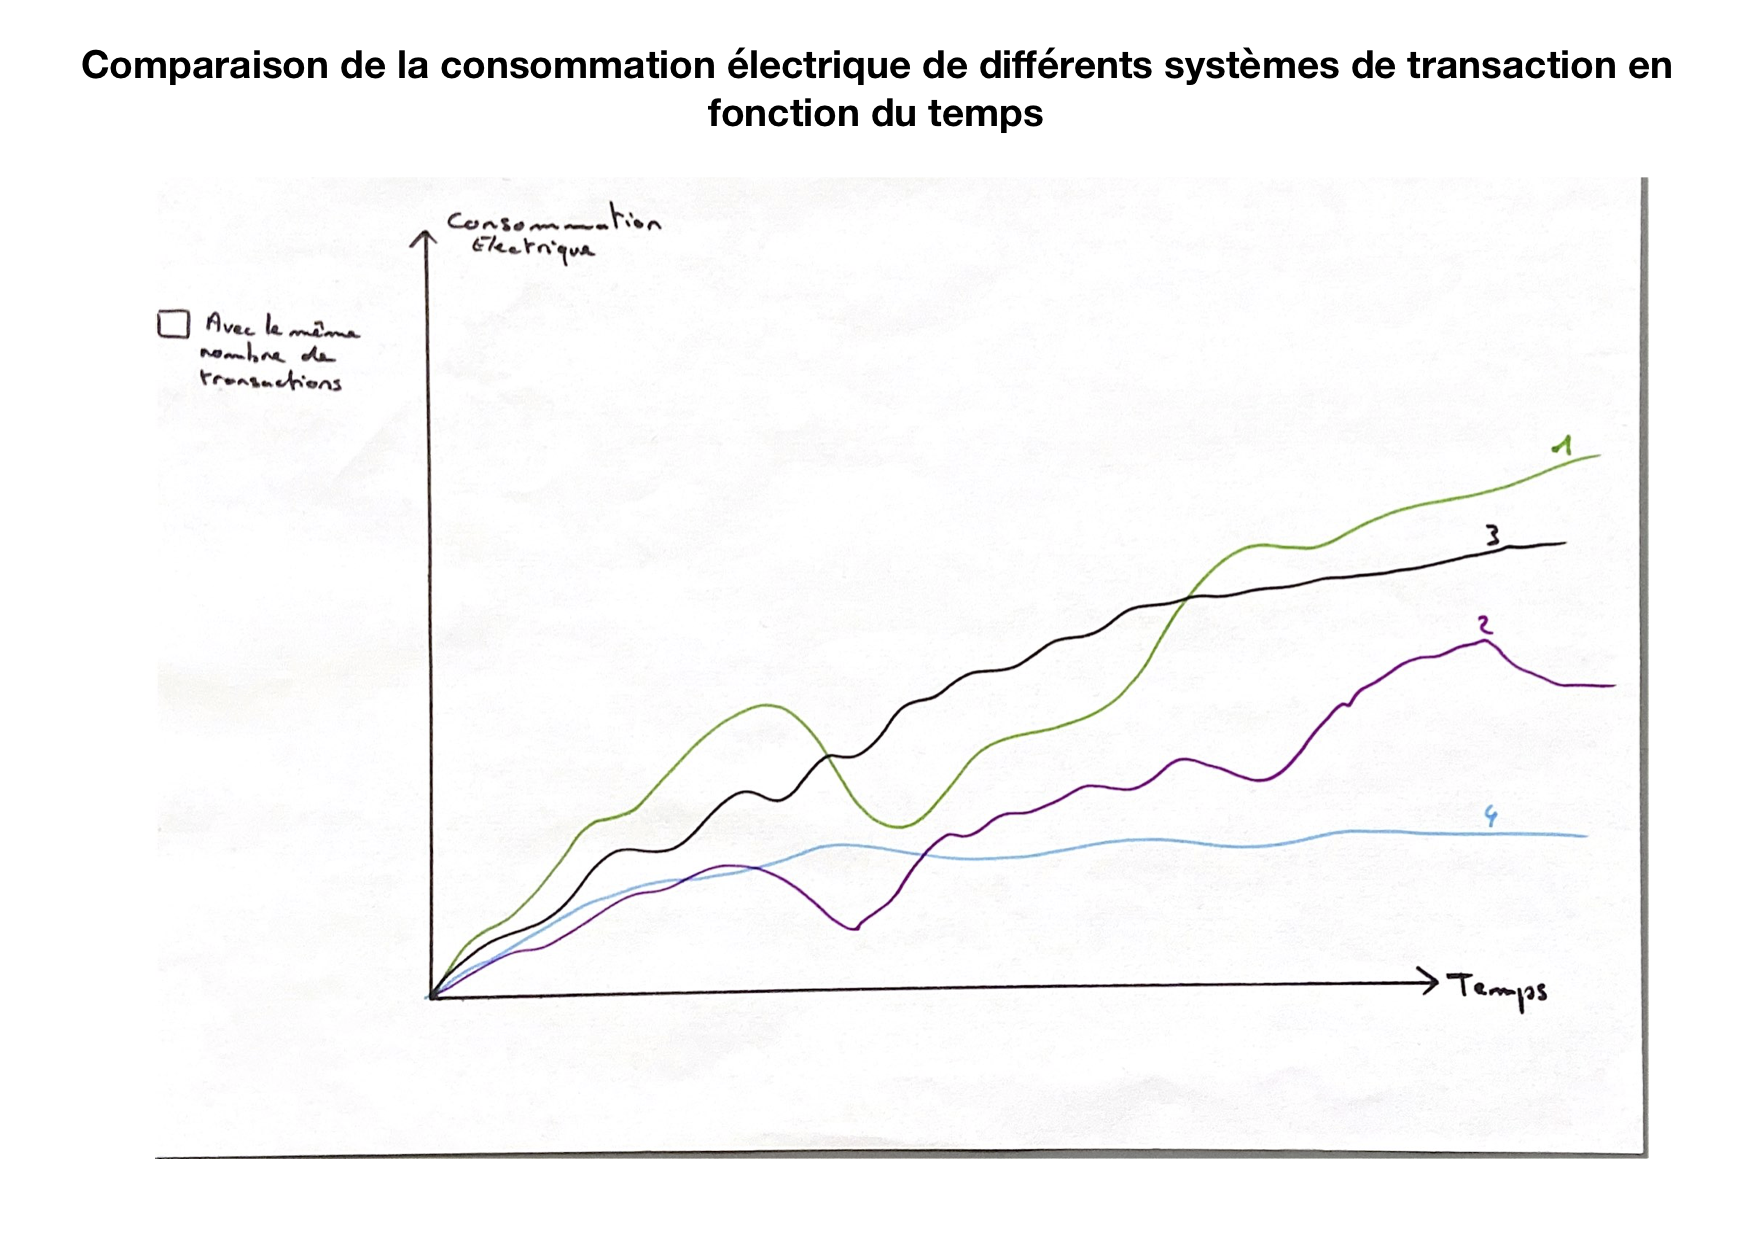 Comparaison de la consommation électrique de différents systèmes de transaction en
fonction du temps
Consommation
Electrique
Avec le même
nombre de
transactions
1
3
2
4
Temps